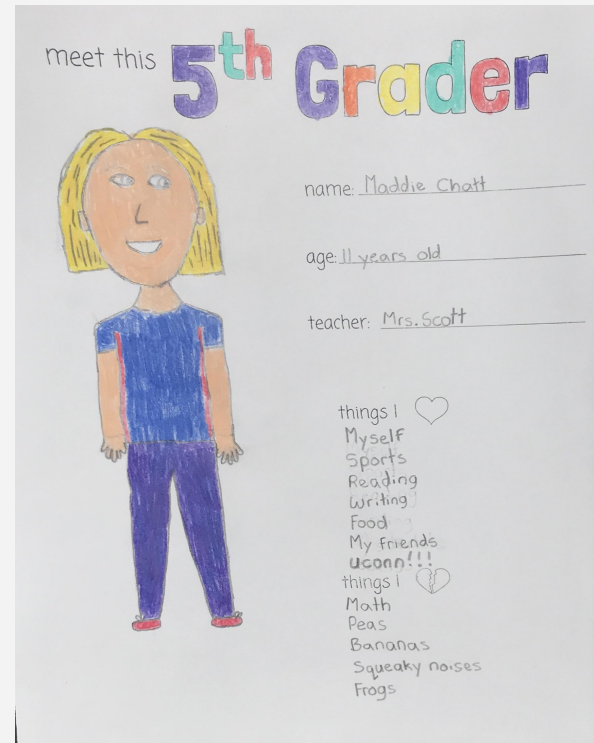 meet this 5th Grader
name: Maddie Chatt
age: 11 years old
teacher: Mrs. Scott
things I
Myself
Sports
Reading
Writing
Food
My friends
uconn!!!
things I
Math
Peas
Bananas
Squeaky noises
Frogs